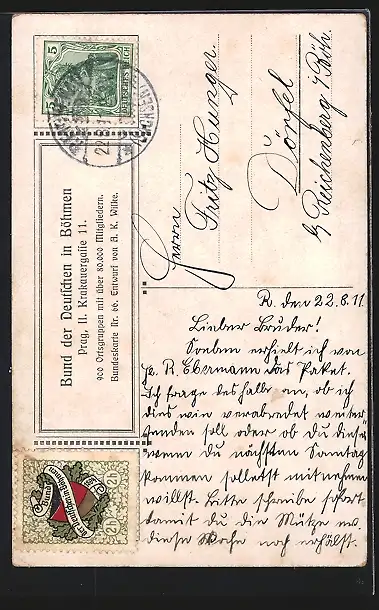 Bund der Deutschen in Böhmen
Prag, II. Krakauergasse 11.
900 Ortsgruppen mit über 80.000 Mitgliedern.
Bundeskarte Nr. 66. Entwurf von A. K. Wilke.
5 5
DEUTSCHES REICH
22.8.11
Herrn
Fritz Hunger.
Dörfel
b/ Reichenberg i/ Böh.
R. den 22.8.11
Lieber Bruder!
Soeben erhielt ich von
R. Ebermann das Paket.
Ich frage deshalb an, ob ich
dies wie verabredet weiter
senden soll oder ob du dieses
wenn du nächsten Sonntag
kommen solltest mitnehmen
willst. Bitte schreibe sofort
damit du die Mütze ev.
diese Woche noch erhälst.
2h 2h
Bund
der Deutschen in Böhmen